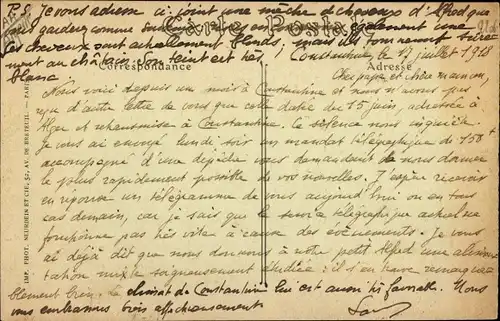 P.S. Je vous adresse ci joint une mèche de cheveux d'Alfred que
vous garderez comme souvenir également
les cheveux sont actuellement blonds, mais ils tourneront
ment au châtain. Son teint est très
blanc
Carte Postale
Correspondance
Adresse
Constantine le 17 juillet 1918
Cher papa et chère maman,
Nous voici depuis un mois à Constantine et nous n'avons pas
reçu d'autre lettre de vous que celle datée du 15 juin, adressée à
Alger et retransmise à Constantine. Ce silence nous inquiète.
Je vous ai envoyé lundi soir un mandat télégraphique de 150
accompagné d'une dépêche vous demandant de nous donner
le plus rapidement possible de vos nouvelles. J'espère recevoir
en réponse un télégramme de vous aujourd'hui ou en tous
cas demain, car je sais que le service télégraphique actuel ne
fonctionne pas très vite à cause des évènements. Je vous
ai déjà dit que nous donnons à notre petit Alfred une alimen
tation mixte soigneusement étudiée : il s'en trouve remarqua
blement bien. le climat de Constantine lui est aussi très favorable. Nous
vous embrassons bien affectueusement
IMP. PHOT. NEURDEIN ET CIE, 52, AV. DE BRETEUIL. — PARIS